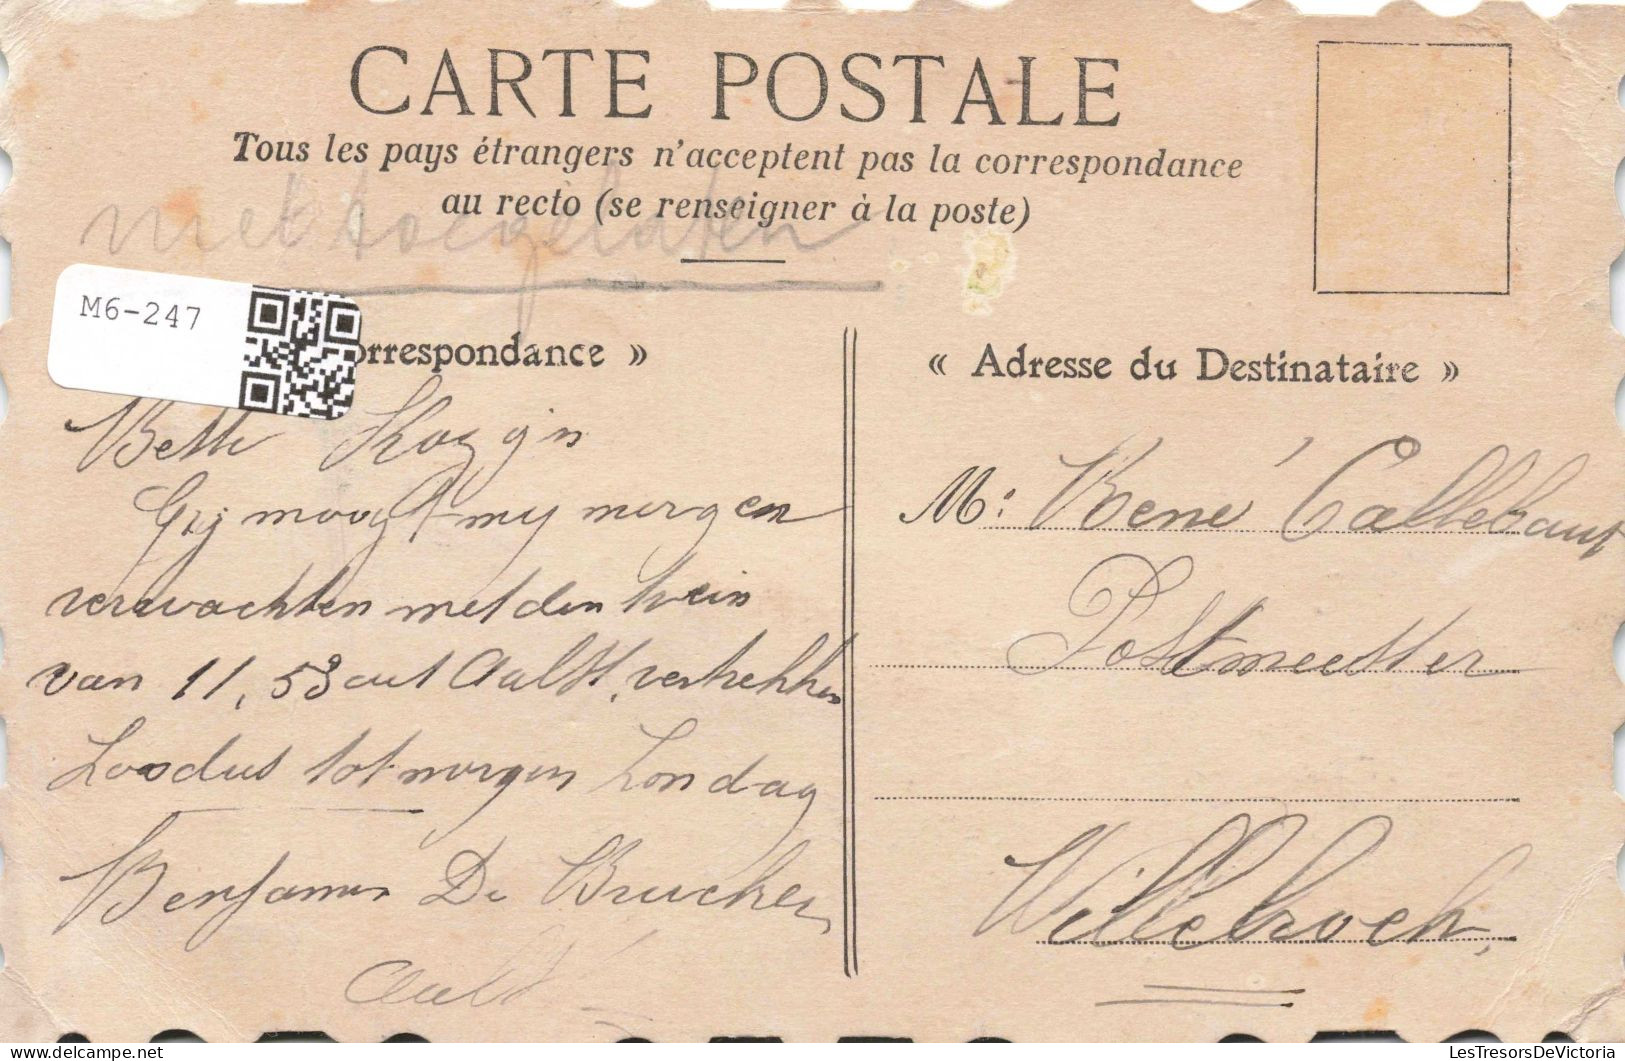 CARTE POSTALE
Tous les pays étrangers n'acceptent pas la correspondance
au recto (se renseigner à la poste)
met toegelaten
M6-247
orrespondance »
Beste Kozijn
Gij moogt my morgen
verwachten met den trein
van 11,53 uit Aalst vertrekken
Loodus tot morgen Zondag
Benjamin De Brucker
Aalst
« Adresse du Destinataire »
M: René Callebaut
Postmeester
Willebroek
LesTresorsDeVictoria